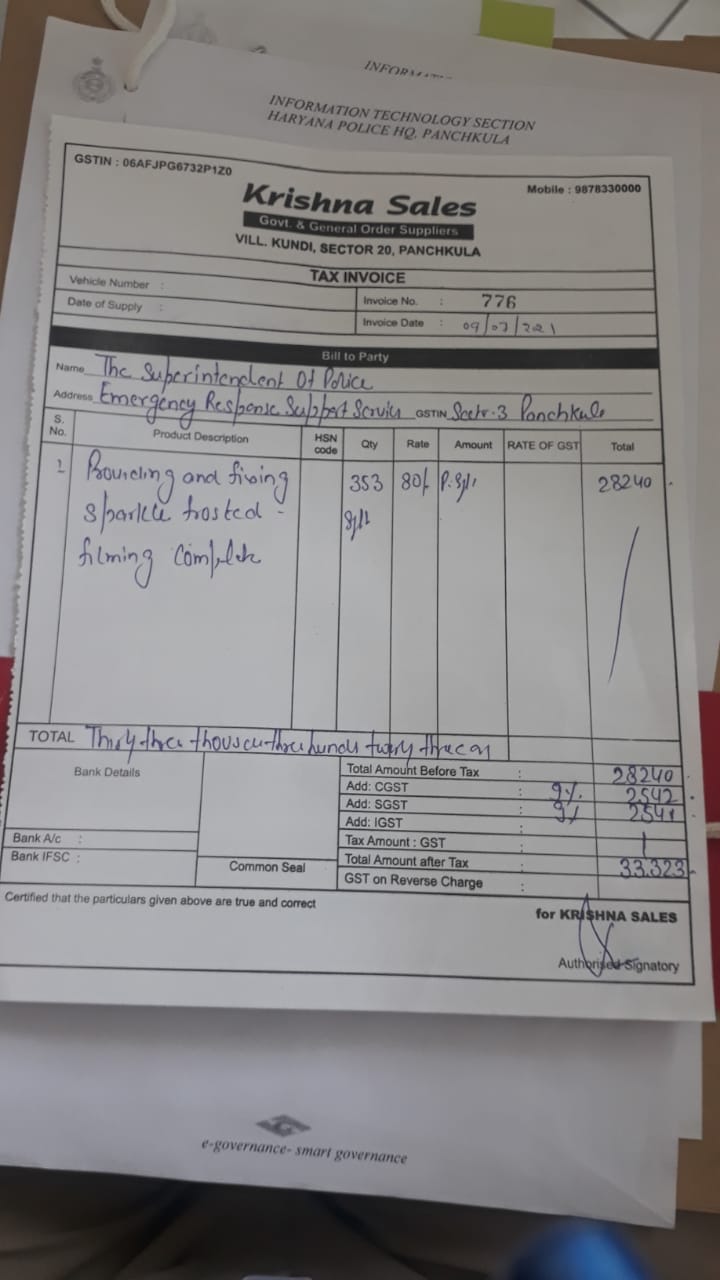 INFORMAT
INFORMATION TECHNOLOGY SECTION
HARYANA POLICE HQ, PANCHKULA
GSTIN : 06AFJPG6732P1Z0
Mobile : 9878330000
Krishna Sales
Govt. & General Order Suppliers
VILL. KUNDI, SECTOR 20, PANCHKULA
TAX INVOICE
Vehicle Number :
Invoice No. : 776
Date of Supply :
Invoice Date : 09/07/2021
Bill to Party
Name The Superintendent Of Police
Address Emergency Response Support GSTIN Sectr-3 Panchkula
S. No. Product Description HSN code Qty Rate Amount RATE OF GST Total
1 and fixing 353 80/- 28240
sparkle frosted
filming
TOTAL Thirty three three twenty three
Bank Details
Total Amount Before Tax : 28240
Add: CGST : 9% 2542
Add: SGST : 9% 2541
Add: IGST :
Bank A/c :
Tax Amount : GST :
Bank IFSC :
Common Seal
Total Amount after Tax : 33,323
GST on Reverse Charge :
Certified that the particulars given above are true and correct
for KRISHNA SALES
Authorised Signatory
e-governance- smart governance